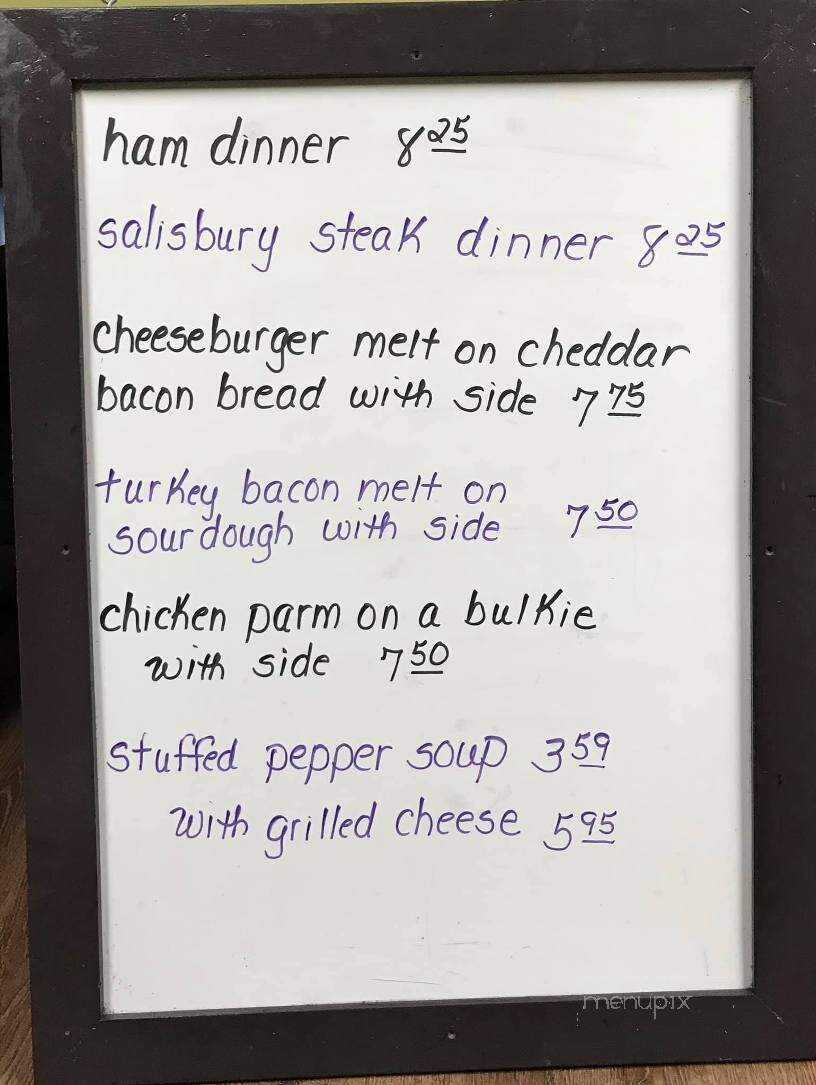 ham dinner 8 25
salisbury steak dinner 8 25
cheeseburger melt on cheddar
bacon bread with side 7 75
turkey bacon melt on
sourdough with side 7 50
chicken parm on a bulkie
with side 7 50
stuffed pepper soup 3 59
with grilled cheese 5 95
menupix